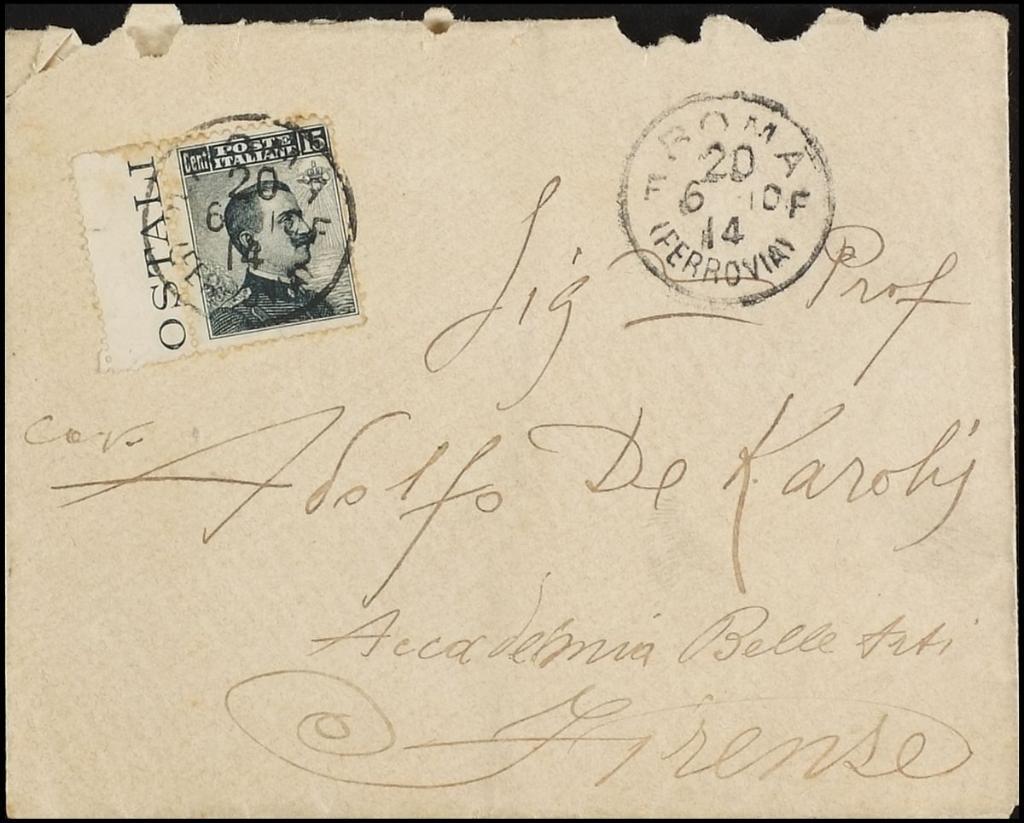 OSTALI
POSTE
Cent ITALIANE 15
20
6 10 F
14
ROMA
20
6 10F
14
(FERROVIA)
Sig Prof
cav. Adolfo De Karolis
Accademia Belle Arti
Firenze